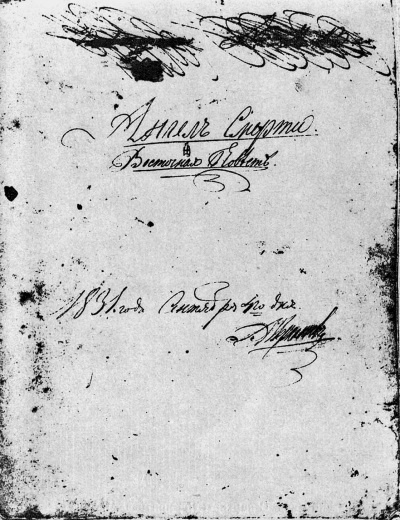 Ангелъ Смерти.
Восточная Повѣсть
1831 года Сентября 4го дня